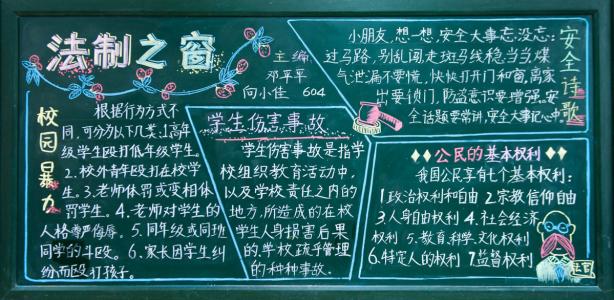 法制之窗
主编
邓平平
向小佳 604
校园暴力
根据行为方式不
同,可分以下几类:1.高年
级学生殴打低年级学生。
2.校外青年殴打在校学
生。3.老师体罚或变相体
罚学生。4.老师对学生的
人格尊严侮辱。5.同年级或同班
同学的斗殴。6.家长因学生纠
纷而殴打孩子。
学生伤害事故
学生伤害事故是指学
校组织教育活动中,
以及学校责任之内的
地方,所造成的在校
学生人身损害后果
的,学校疏乎管理
的种种事故.
安全诗歌
小朋友,想一想,安全大事忘没忘:
过马路,别乱闯,走斑马线稳当当,煤
气泄漏不要慌,快快打开门和窗,离家
出要锁门,防盗意识要增强。安
全话题要常讲,安全大事记心中.
公民的基本权利
我国公民享有七个基本权利:
1政治权利和自由 2.宗教信仰自由
3.人身自由权利 4.社会经济
权利 5.教育,科学,文化权利
6.特定人的权利 7.监督权利